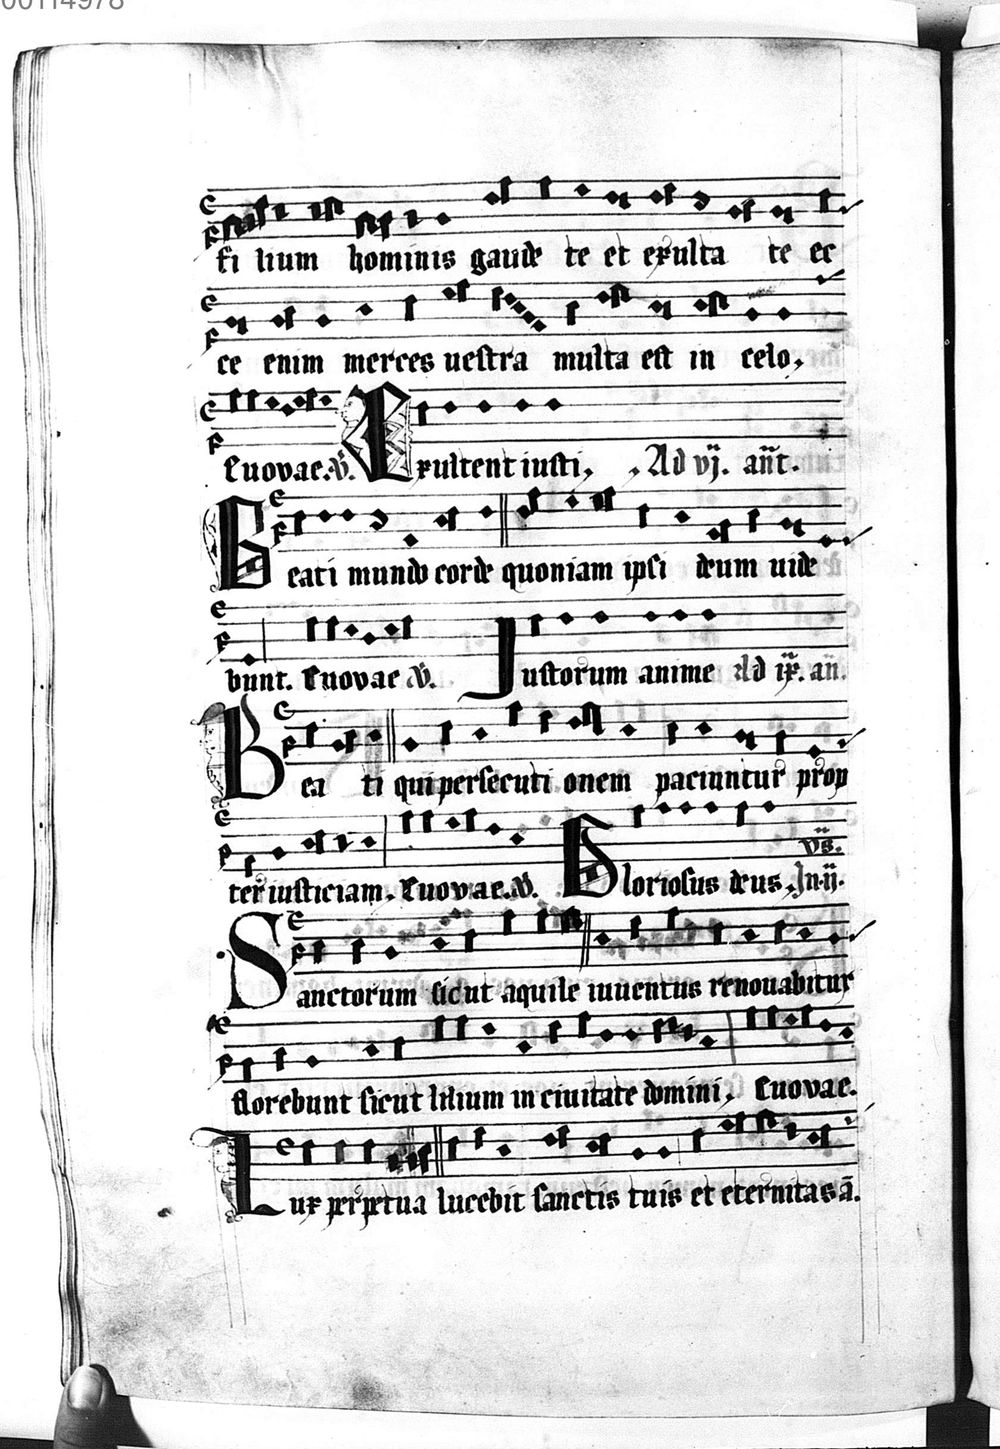 00114978
fi lium hominis gaude te et exulta te ec
ce enim merces uestra multa est in celo.
Euovae. V. Exultent iusti. Ad vj. ant.
Beati mundo corde quoniam ipsi deum uide
bunt. Euovae V. Justorum anime Ad ix. an.
Bea ti qui persecuti onem paciuntur prop
vs.
ter iusticiam. Euovae. V. Gloriosus deus. In ij.
Sanctorum sicut aquile iuuentus renouabitur
florebunt sicut lilium in ciuitate domini. Euovae.
Lux perpetua lucebit sanctis tuis et eternitas a.